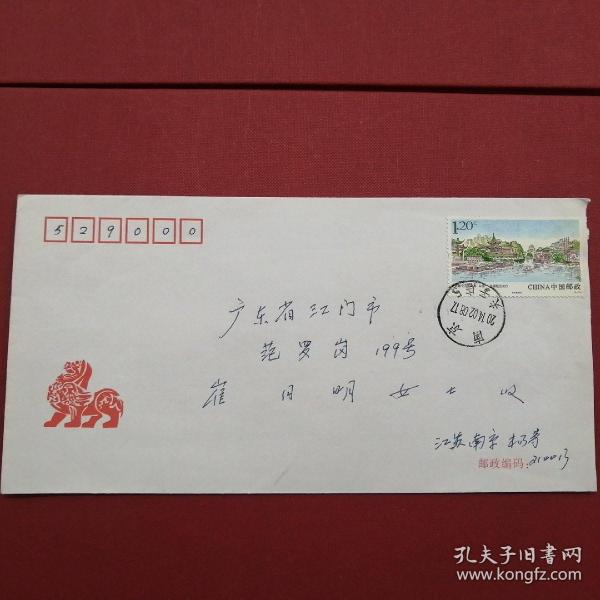 529000
1.20元
CHINA中国邮政
2014.02.08.17
南京
广东省江门市
范罗岗 199号
崔月明女士收
江苏南京杨寄
邮政编码:210013
孔夫子旧书网
www.kongfz.com